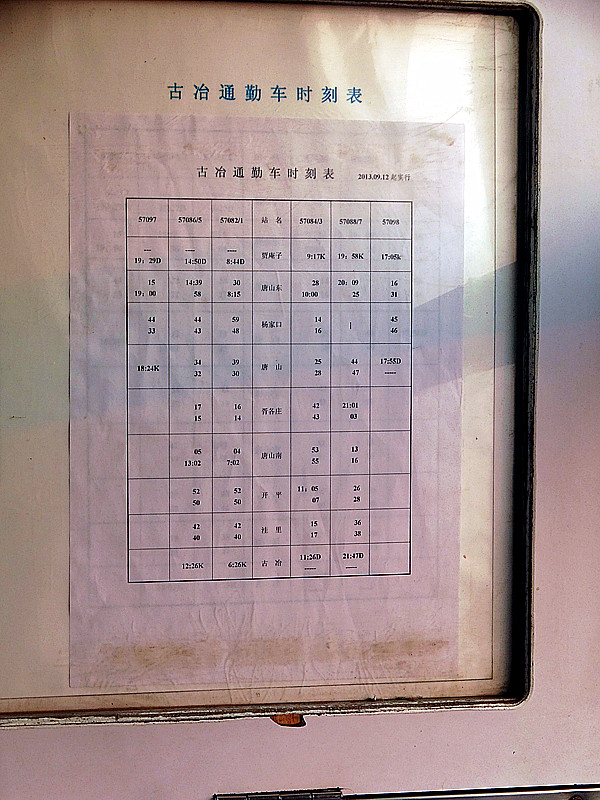 古冶通勤车时刻表
古冶通勤车时刻表 2013.09.12 起实行
57097 57086/5 57082/1 站 名 57084/3 57088/7 57098
---- ---- ---- 贾庵子 9:17K 19：58K 17:05k
19：29D 14:50D 8:44D
15 14:39 30 唐山东 28 20：09 16
19：00 58 8:15 10:00 25 31
44 44 59 杨家口 14 | 45
33 43 48 16 46
18:24K 34 39 唐 山 25 44 17:55D
32 30 28 47 -----
17 16 胥各庄 42 21:01
15 14 43 03
05 04 唐山南 53 13
13:02 7:02 55 16
52 52 开 平 11：05 26
50 50 07 28
42 42 洼 里 15 36
40 40 17 38
12:26K 6:26K 古 冶 11:26D 21:47D
----- -----